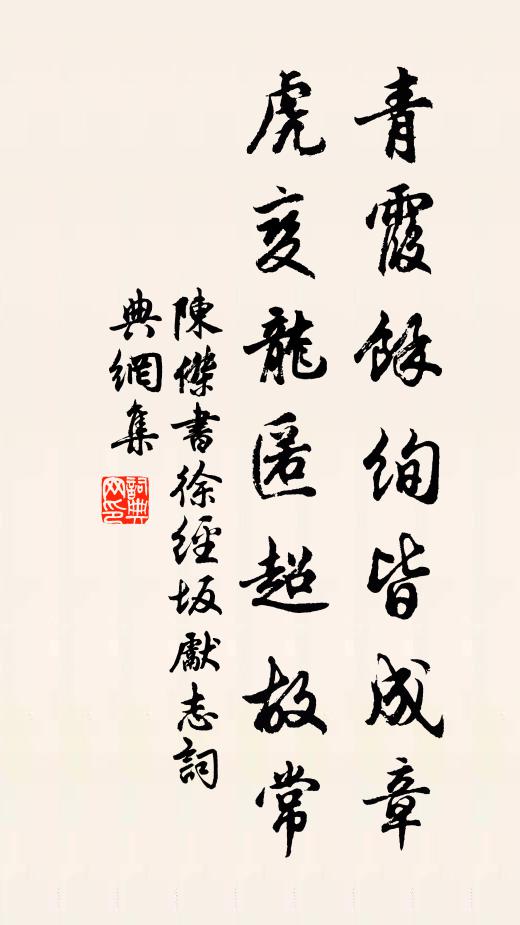 青霞餘絢皆成章
虎变龍匿超故常
陳傑書徐經坂獻志詞
典網集
詞典网印